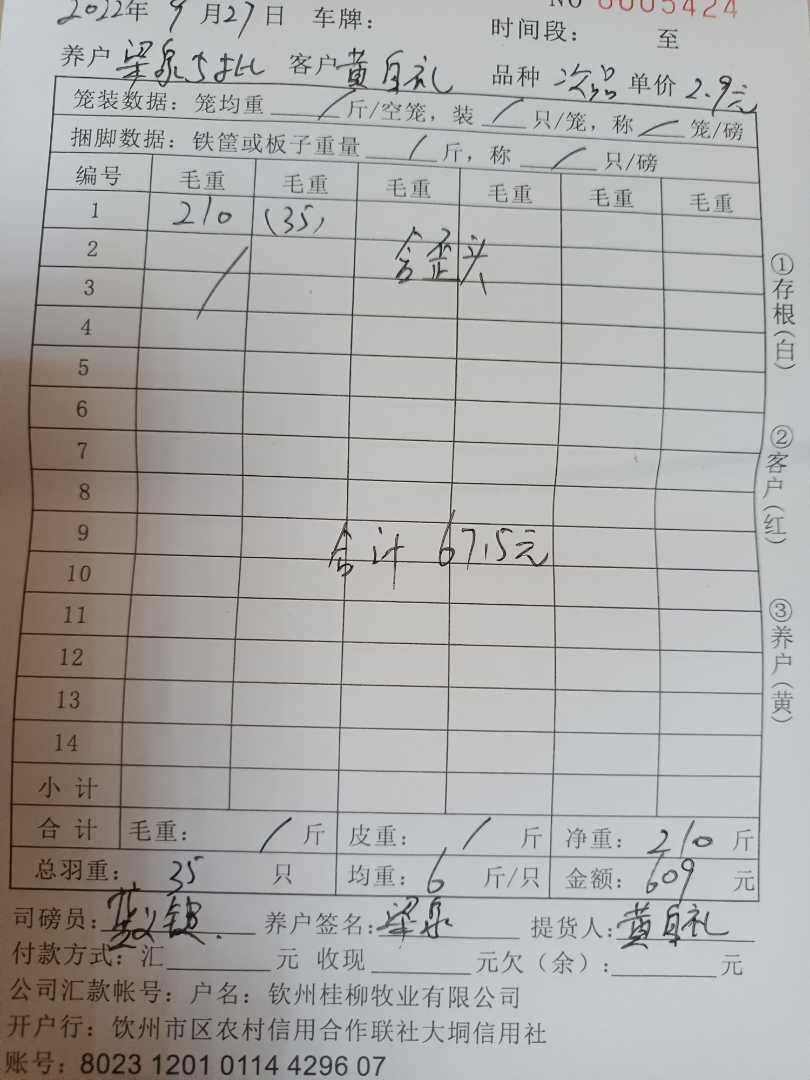 NO 0005424
2022年9月27日 车牌： 时间段： 至
养户 梁泉 客户 黄自礼 品种 次品 单价 2.9元
笼装数据：笼均重 / 斤/空笼，装 / 只/笼，称 / 笼/磅
捆脚数据：铁筐或板子重量 / 斤，称 / 只/磅
编号 毛重 毛重 毛重 毛重 毛重 毛重
1 210 (35)
2 含歪头
3 /
4
5
6
7
8
9 合计 67.5元
10
11
12
13
14
小计
合计 毛重： / 斤 皮重： / 斤 净重： 210 斤
总羽重： 35 只 均重： 6 斤/只 金额： 609 元
司磅员： 养户签名：梁泉 提货人：黄自礼
付款方式：汇 元 收现 元欠（余）： 元
公司汇款帐号：户名：钦州桂柳牧业有限公司
开户行：钦州市区农村信用合作联社大垌信用社
账号：8023 1201 0114 4296 07
①存根（白）
②客户（红）
③养户（黄）